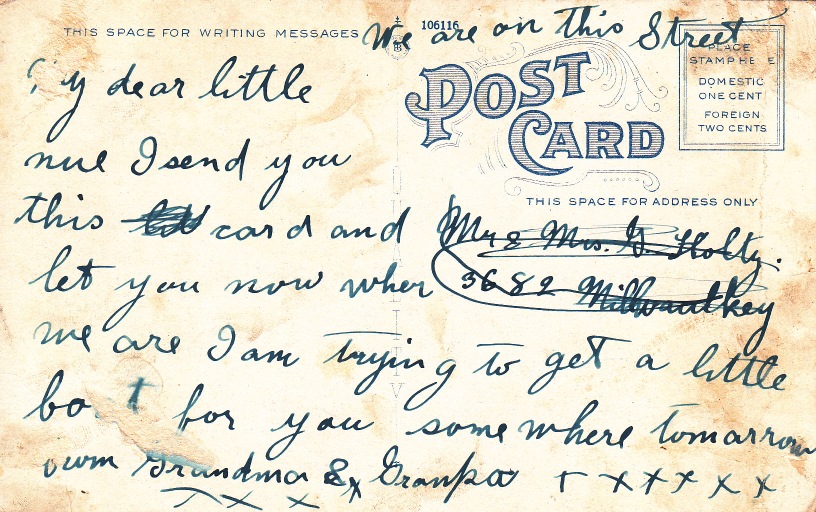 THIS SPACE FOR WRITING MESSAGES
106116
We are on this Street
POST
CARD
PLACE
STAMP HE E
DOMESTIC
ONE CENT
FOREIGN
TWO CENTS
THIS SPACE FOR ADDRESS ONLY
Mr & Mrs. G. Holtz.
3682 Milwaulkey
y dear little
nue I send you
this card and
let you now wher
we are I am trying to get a little
bo t for you somewhere tomarrow
owm Grandma & Granpa + x x x x x
x x x